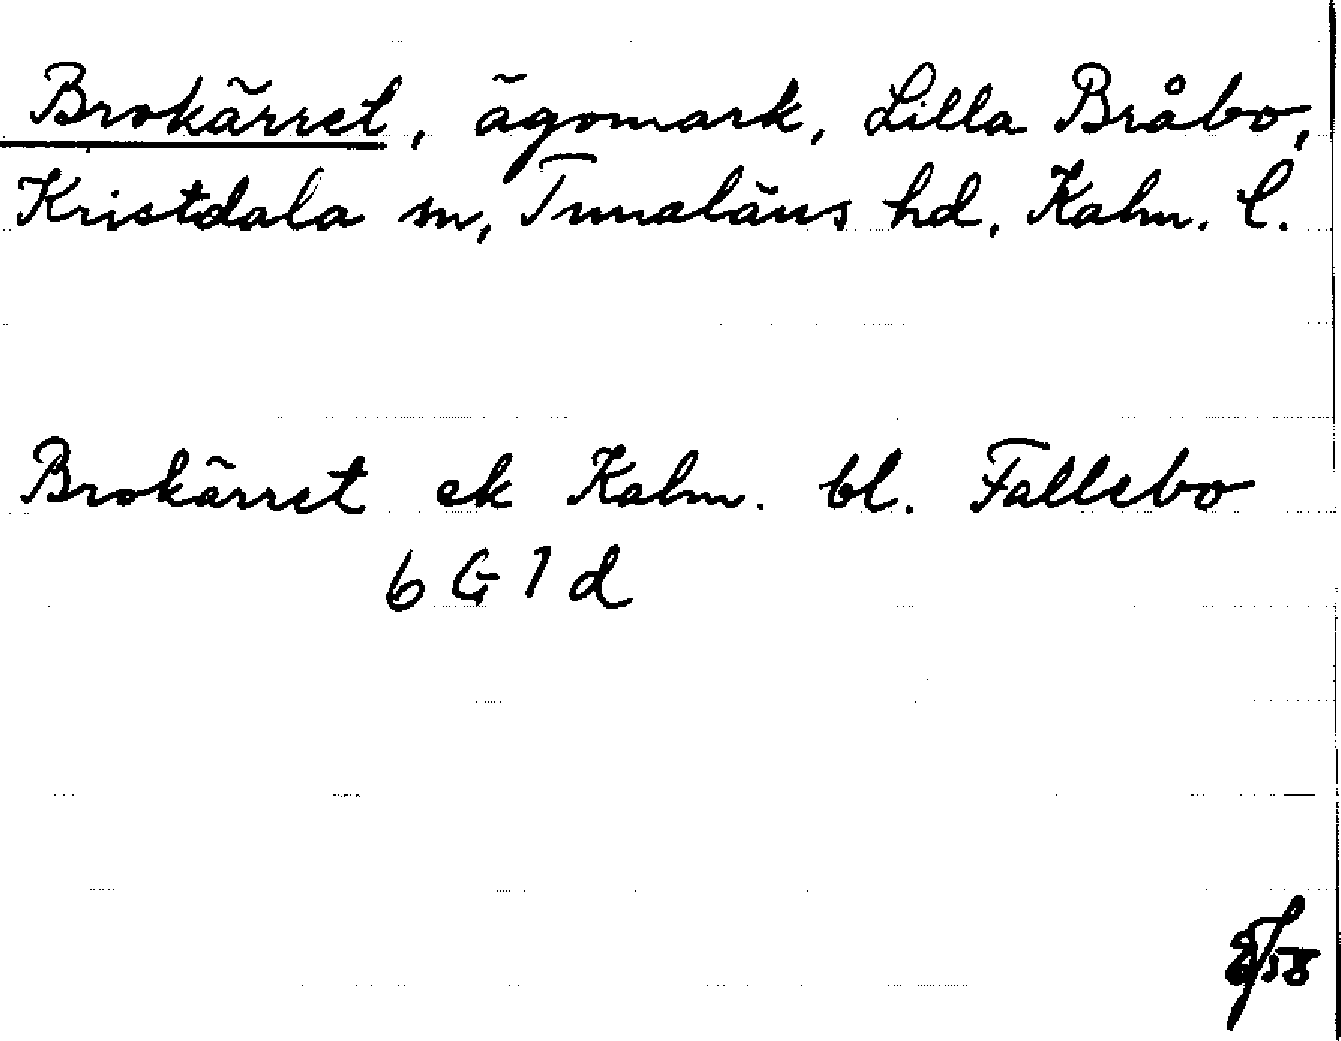 Brokärret, ägomark, Lilla Bråbo,
Kristdala sn, Tunaläns hd, Kalm. l.
Brokärret ek Kalm. bl. Fallebo
6 G 7 d